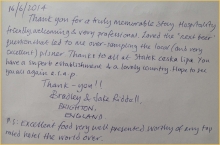 16/6/2014
Thank you for a truly memorable stay. Hospitality
welcoming & very professional. Loved the "next beer"
question that led to me over-sampling the local (and very
excellent) pilsner. Thanks to all at Statek Ceska Lipa. You
have a superb establishment & a lovely country. Hope to see
you all again e.t.a.p.
Thank-you!!
Bradley & Julie Riddell,
BRIGHTON,
ENGLAND
P.S: Excellent food very well presented worthy of any top
rated hotel the world over.